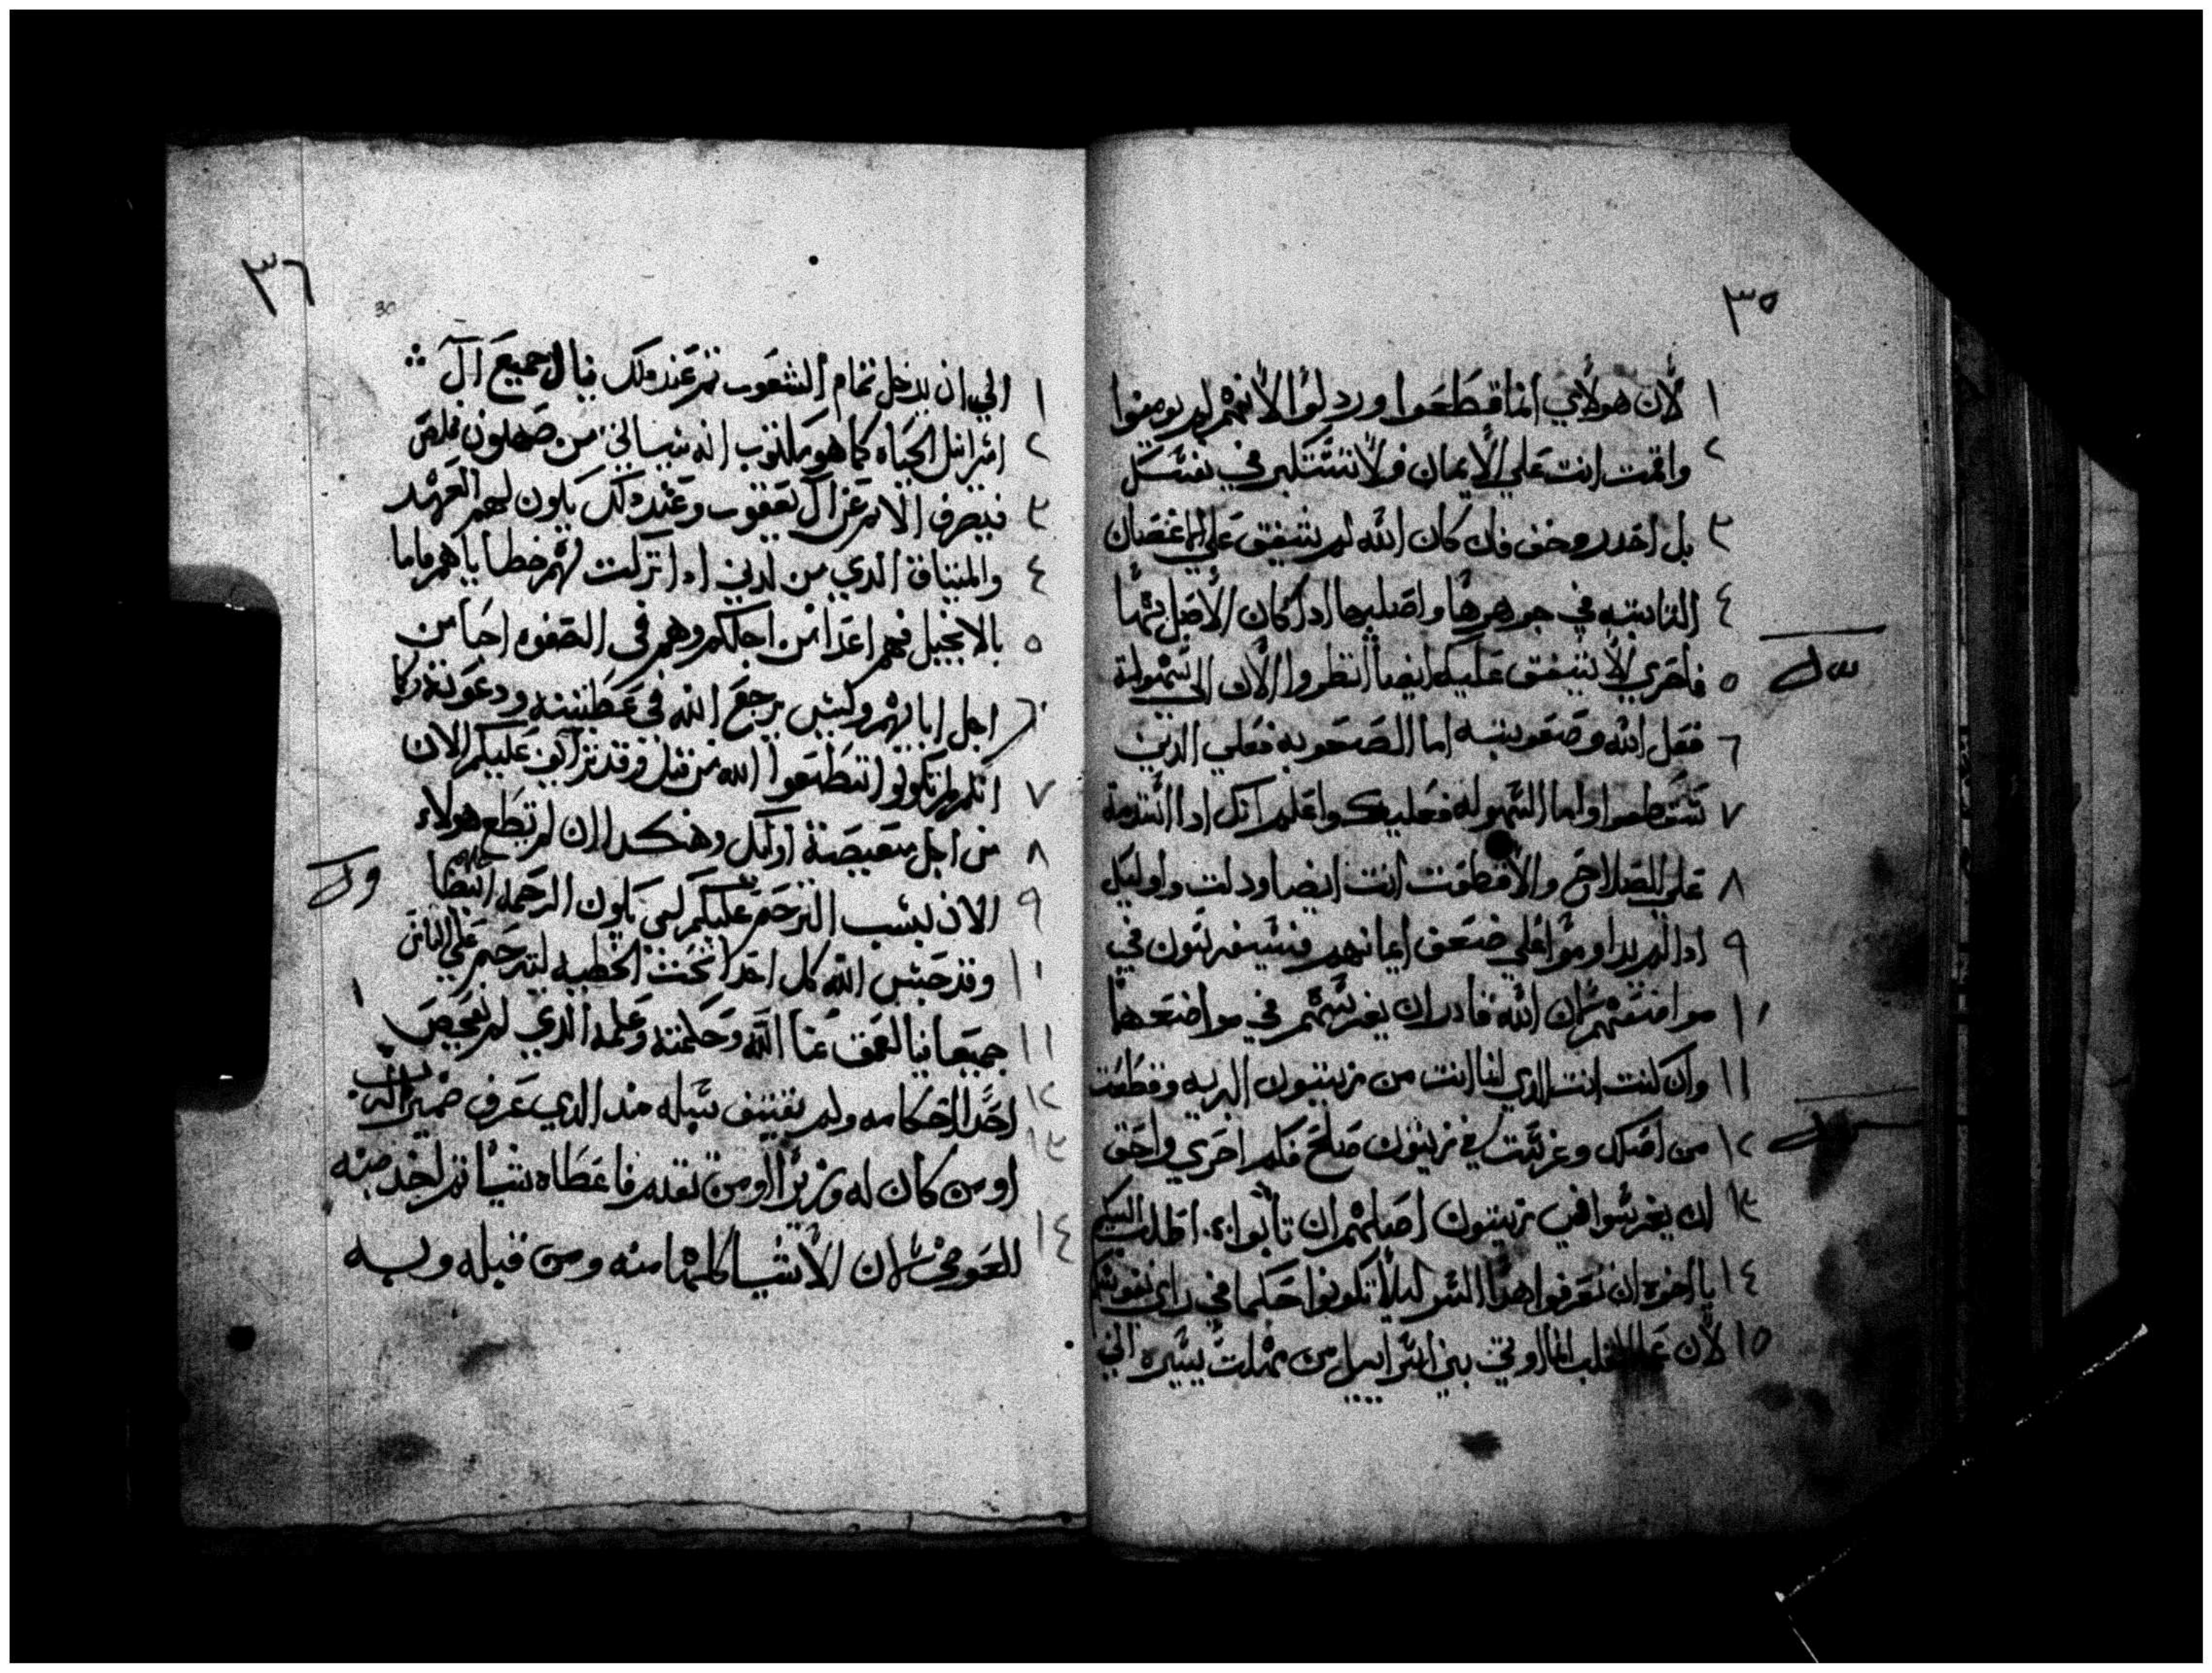 ٣٥
١ لأن هولاي انما قطعوا وردلوا لأنهم لم يومنوا
٢ واقمت انت علي الايمان فلا تستكبر في نفسك
٣ بل احدر وخف فان كان الله لم يشفق علي الاغصان
٤ النابته في جوهرها واصلها اد كان الأصل بثمها
٥ فاحري الا يشفق عليك ايضا انظروا الأن الي سهولة
٦ فعل الله وصعوبته اما الصعوبه فعلي الدين
٧ سقطعوا واما السهوله فعليك واعلم انك ادا استدمة
٨ علي الصلاح والا قطعت انت ايضا ودلت واوليك
٩ ادا لم يداوموا علي ضعف ايمانهم فسيغرسون في
١٠ مواضعهم لان الله قادر ان يغرسهم في مواضعها
١١ وان كنت انت الذي لنا انت من زيتون البريه وقطعت
١٢ من اصلك وغرست في زيتون صلح فكم احري واحق
١٣ ان يغرسوا في زيتون اصلهم ان تابوا اطلب اليكم
١٤ يا اخوه ان تعرفوا هدا السر ليلا تكونوا حكما في راي نفوسكم
١٥ لأن القلب انما اوتي بني اسراييل من يسيره الي
٣٦
30
١ الي ان يدخل تمام الشعوب تم عند دلك ينال جميع آل
٢ اسراييل الحياه كما هو مكتوب انه سياتي من صهيون مخلص
٣ فيصرف الاثم عن آل يعقوب وعند دلك يكون لهم العهد
٤ والميتاق الذي من لدني ادا تركت لهم خطاياهم فاما
٥ بالانجيل فهم اعدا من اجلكم وهم في الصفوه احبا من
٦ اجل ابايهم وليس يرجع الله في عطيته ودعوته وكما
٧ انكم لم تكونوا تطعوا الله من قبل وقد تراف عليكم الان
٨ من اجل معيصة اوليك وهكدا ان لم يطع هولاء
٩ الان بسبب الترحم عليكم لكي يكون الرحمه ايضا
١٠ وقد حبس الله كل احدا تحت الخطيه ليترحم علي الناس
١١ جميعا فيا لعمق غنا الله وحكمته وعلمه الذي لم يفحص
١٢ احدا احكامه ولم يقتف سبله مند الدي عرف ضمير الرب
١٣ او من كان له وزيرا او من تقدم فاعطاه شيا تم اخد منه
١٤ العوض لان الأشيا كلها منه ومن قبله وبه